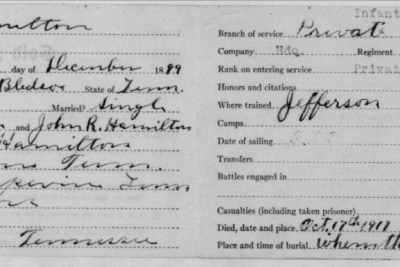 milton
day of December 1889
Bledsoe State of Tenn.
Married? Single
and John R. Hamilton
Hamilton
Tenn.
Tenn
Tennessee
Infant
Branch of service Private
Company Hdq. Regiment
Rank on entering service Privat
Honors and citations
Where trained Jefferson
Camps
Date of sailing
Transfers
Battles engaged in
Casualties (including taken prisoner)
Died, date and place Oct. 17th 1918
Place and time of burial